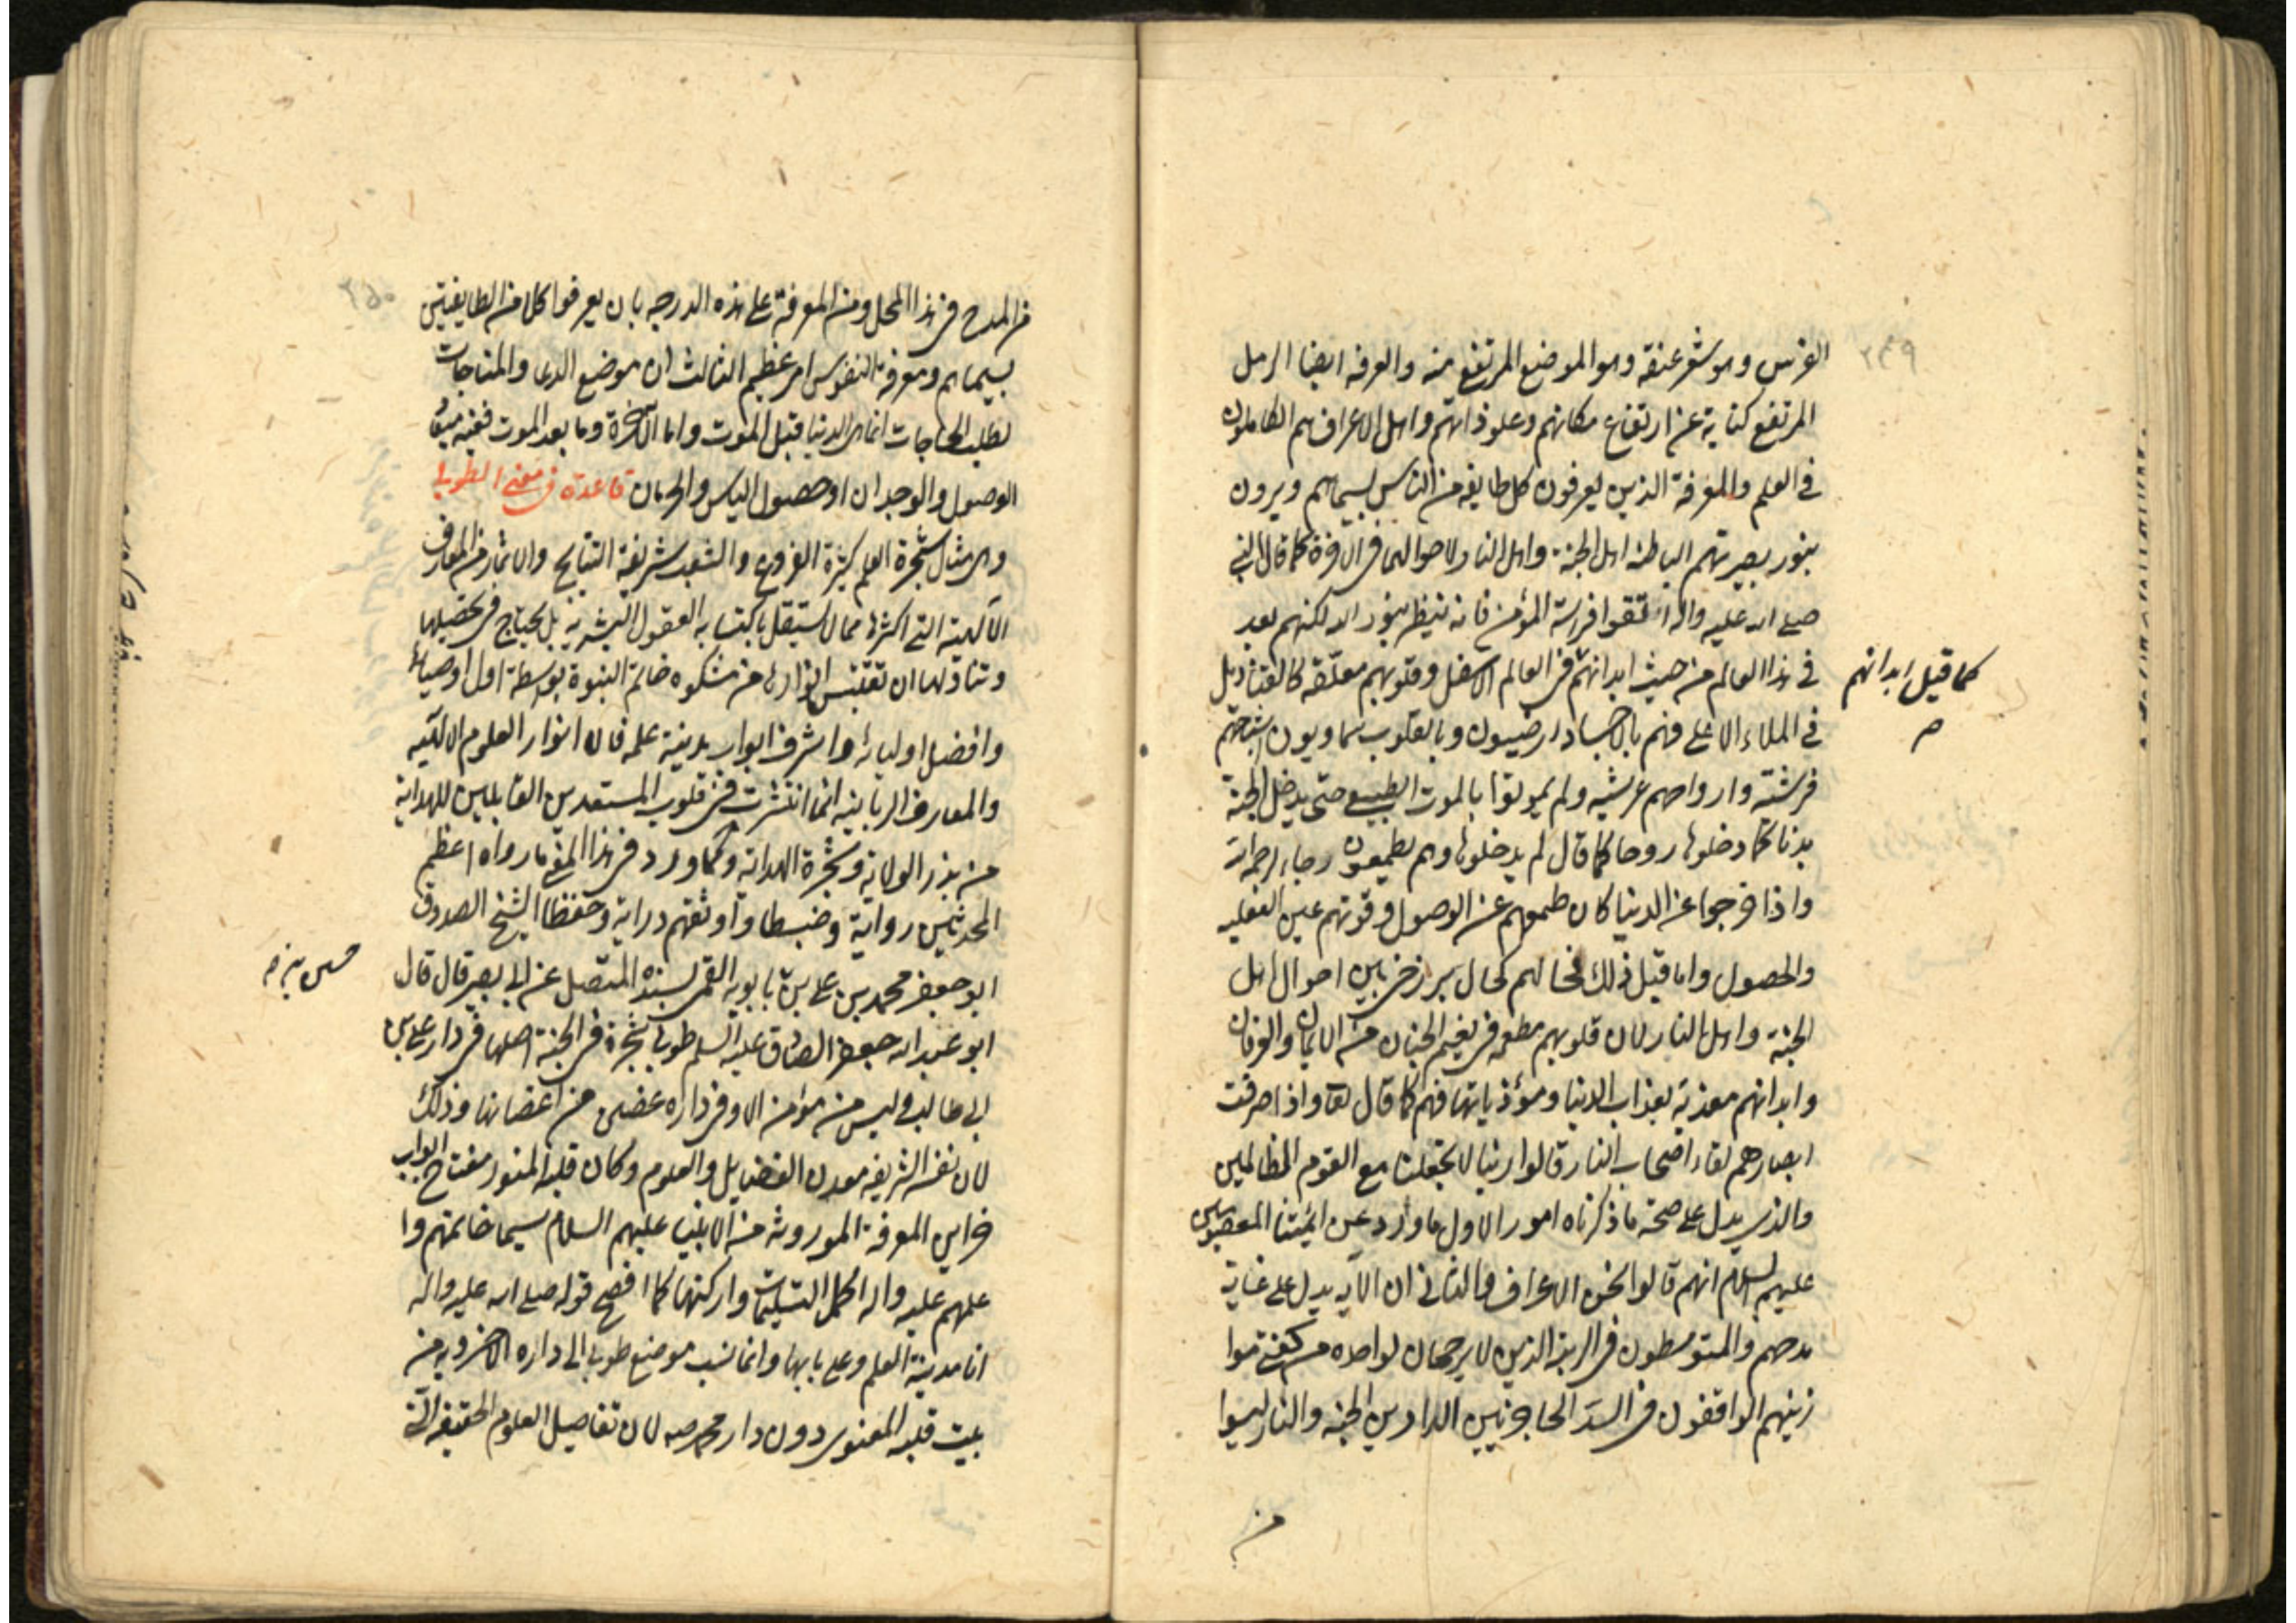 ٢٤٩
الفرس وهو شعر عنقه وهو الموضع المرتفع منه والعرفه ايضا الرمل
المرتفع كناية عن ارتفاع مكانهم وعلو ذاتهم واهل الاعراف هم الكاملون
في العلم والمعرفة الذين يعرفون كل طايفه من الناس بسيماهم ويرون
بنور بصيرتهم الباطنه اهل الجنة واهل النار واحوالهما في الاخرة كما قال النبي
صلى الله عليه واله اتقوا فراسة المؤمن فانه ينظر بنور الله لكنهم بعد
في هذا العالم من حيث ابدانهم في العالم الاسفل وقلوبهم معلقه كالقناديل
كما قيل ابدانهم
في الملاء الاعلى فهم بالاجساد ارضيون وبالقلوب سماويون اشباحهم
فرشية وارواحهم عرشيه ولم يموتوا بالموت الطبيعي حتى يدخل الجنة
بدنا كما دخلوها روحا كما قال لم يدخلوها وهم يطمعون رجاء لرحمة الله
واذا خرجوا عن الدنيا كان طمعهم عين الوصول وقوتهم عين الفعليه
والحصول واما قبل ذلك فحالهم كحال برزخي بين احوال اهل
الجنة واهل النار لان قلوبهم مطعمه في نعيم الجنان من الايمان والعرفان
وابدانهم معذبة بعذاب الدنيا ومؤذياتها فهم كما قال تعا واذا صرفت
ابصارهم تلقاء اصحاب النار قالوا ربنا لا تجعلنا مع القوم الظالمين
والذي يدل على صحة ما ذكرناه امور الاول ما ورد عن ائمتنا المعصومين
عليهم السلام انهم قالوا نحن الاعراف والثاني ان الآيه يدل على غاية
مدحهم والمتوسطون في الرتبة الذين لا رجحان لواحده من كفتي موا
زينهم الواقفون في السد الحاجز بين الدارين الجنه والنار ليسوا
من
٢٥٠
من المدح في هذا المحل ومن المعرفة على هذه الدرجه بان يعرفوا كلا من الطايفتين
بسيماهم ومعرفة النفوس امر عظيم الثالث ان موضع الدعا والمناجات
لطلب الحاجات انما هى الدنيا قبل الموت واما الآخرة وما بعد الموت ففيه
الوصول والوجدان او حصول الياس والحرمان قاعدة في معنى الطوبى
وهى مثال شجرة العلم كثيرة الفروع والشعب شريفة النتايج والاثمار من المعارف
الآلهية التي اكثرها مما لا يستقل باكتسابه العقول البشريه بل يحتاج في تحصيلها
وتناولها ان تقتبس انوارها من مشكوه خاتم النبوة بوسطة اول اوصيائه
وافضل اوليائه واشرف ابواب مدينة علمه فان انوار العلوم الالهيه
والمعارف الربانيه انما انتشرت في قلوب المستعدين القابلين للهداية
من بذر الولاية وشجرة الهداية وكما ورد في هذا المعنى ما رواه اعظم
المحدثين رواية وضبطا واوثقهم دراية وحفظا الشيخ الصدوق
ابو جعفر محمد بن على بن بابويه القمى بسنده المتصل عن ابي بصير قال قال
ابو عبد الله جعفر الصادق عليه السلم طوبى شجرة في الجنة اصلها في دار على بن
ابي طالب وليس من مؤمن الا وفي داره غصن من اغصانها وذلك
لان نفسه الشريفه معدن الفضايل والعلوم وكان قلبه المنور مفتاح ابواب
خزاين المعرفة الموروثه من الانبياء عليهم السلام سيما خاتمهم وا
علمهم عليه واله اكمل التسليمات وازكيها كما افصح قوله صلى الله عليه واله
انا مدينة العلم وعلى بابها وانما نسب موضع طوبى الى داره الاخرويه من
بيت قلبه المعنوى دون دار محمد صه لان تفاصيل العلوم الحقيقيه التي